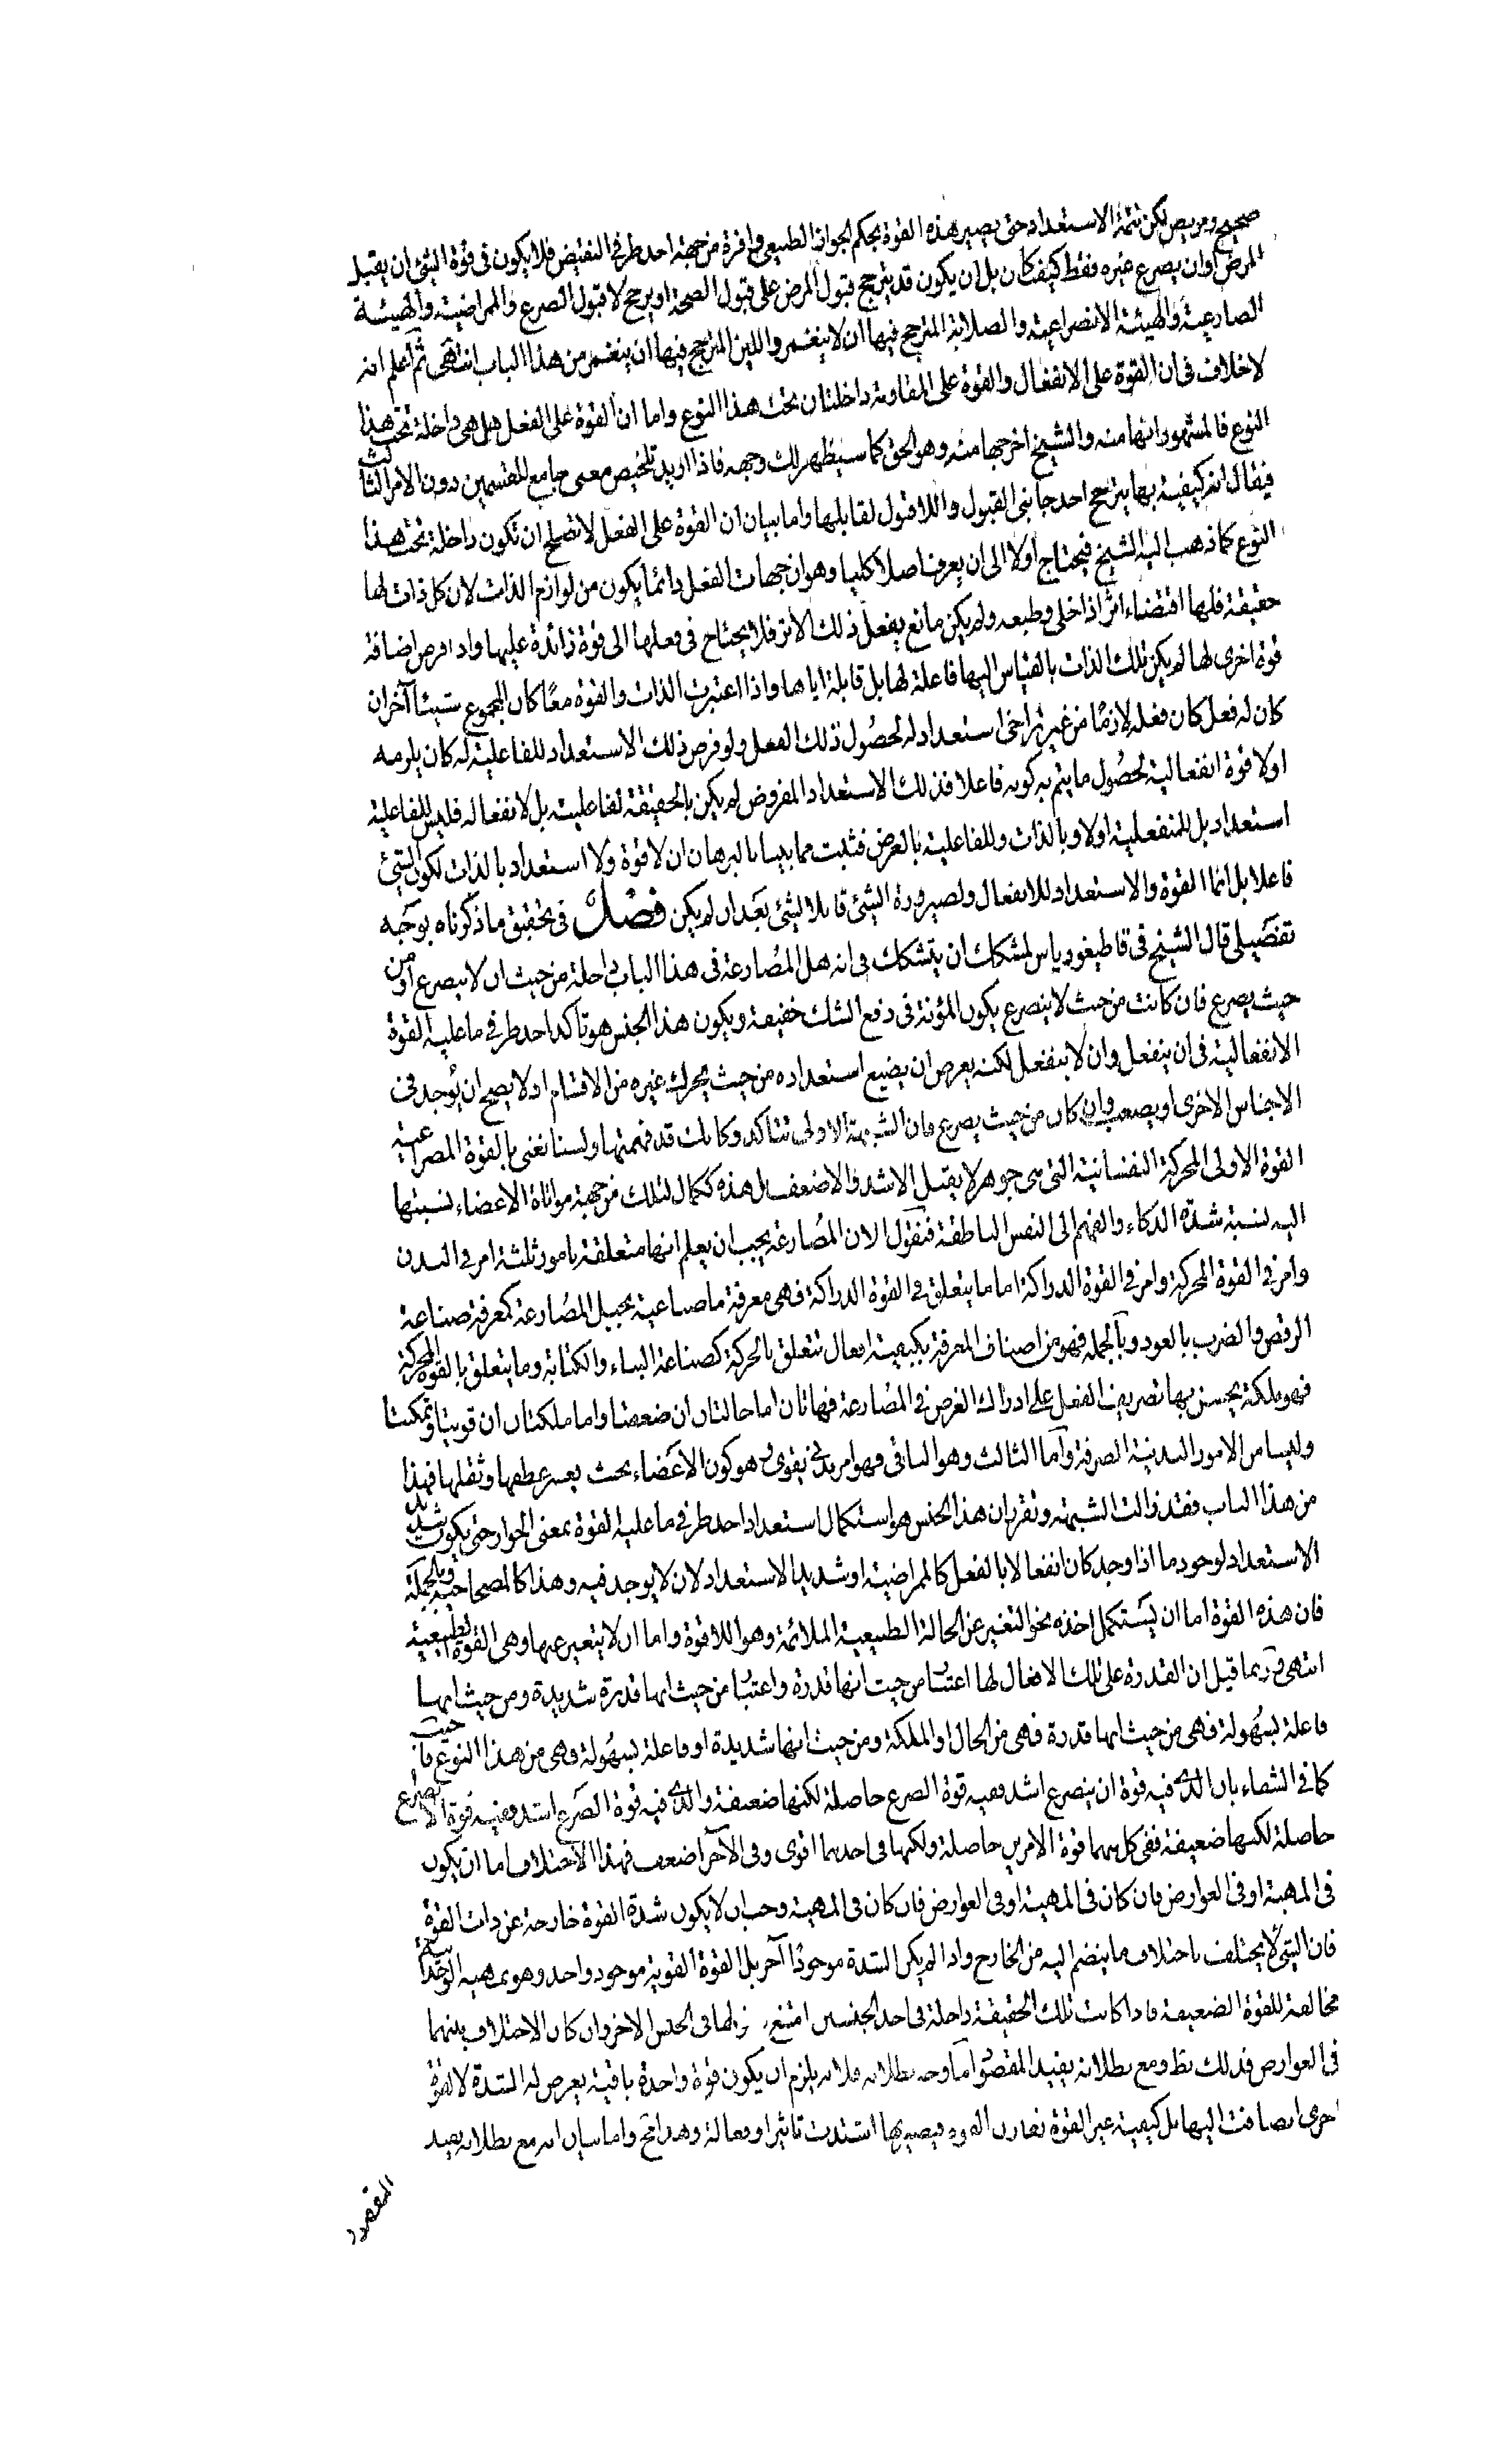 صحيح ومريض لكن تتمة الاستعداد حتى يصير هذه القوة بحكم الجواز الطبيعى وافرة من جهة احد طرفى النقيض فلا يكون فى قوة الشئ ان يقبل
المرض او ان يصرع غيره فقط كيف كان بل ان يكون قد يترجح قبول المرض على قبول الصحة او يرجح لا قبول الصرع والممراضية والهيئة
الصارعية والهيئة الانصراعية والصلابة المترجح فيها ان لا ينغمر واللين المترجح فيها ان ينغمر من هذا الباب انتهى ثم اعلم انه
لا خلاف فى ان القوة على الانفعال والقوة على المقاومة داخلتان تحت هذا النوع واما ان القوة على الفعل هل هى داخلة تحت هذا
النوع فالمشهور انها منه والشيخ اخرجها منه وهو الحق كما سيظهر لك وجهه فاذا اريد تلخيص معنى جامع للقسمين دون الامر الثالث
فيقال انه كيفية بها يترجح احد جانبى القبول واللاقبول لقابلها واما بيان ان القوة على الفعل لا تصلح ان تكون داخلة تحت هذا
النوع كما ذهب اليه الشيخ فيحتاج اولا الى ان يعرف اصلا كليا وهو ان جهات الفعل دائما يكون من لوازم الذات لان كل ذات لها
حقيقة فلها اقتضاء اثر اذا خلى وطبعه ولم يكن مانع يفعل ذلك الاثر فلا يحتاج فى فعلها الى قوة زائدة عليها واذا فرض اضافة
قوة اخرى لها لم يكن تلك الذات بالقياس اليها فاعلة لها بل قابلة اياها واذا اعتبرت الذات والقوة معا كان المجموع شيئا آخر ان
كان له فعل كان فعله لازما من غير تراخى استعداد له لحصول ذلك الفعل ولو فرض ذلك الاستعداد للفاعلية له كان يلزمه
اولا قوة انفعالية لحصول ما يتم به كونه فاعلا فذلك الاستعداد المفروض لم يكن بالحقيقة لفاعليته بل لانفعاله فليس للفاعلية
استعداد بل للمنفعلية اولا وبالذات وللفاعلية بالعرض فثبت مما بينا بالبرهان ان لا قوة ولا استعداد بالذات لكون الشئ
فاعلا بل انما القوة والاستعداد للانفعال ولصيرورة الشئ قابلا لشئ بعد ان لم يكن فصل فى تحقيق ما ذكرناه بوجه
تفصيلى قال الشيخ فى قاطيغورياس لمشكك ان يتشكك فى انه هل المصارعة فى هذا الباب داخلة من حيث ان لا ينصرع او من
حيث يصرع فان كانت من حيث لا ينصرع يكون المؤنة فى دفع الشك خفيفة ويكون هذا الجنس هو تاكد احد طرفى ما عليه القوة
الانفعالية فى ان ينفعل وان لا ينفعل لكنه يعرض ان يضيع استعداده من حيث يحرك غيره من الاقسام اذ لا يصح ان يوجد فى
الاجناس الاخرى او يصعب وان كان من حيث يصرع فان الشبهة الاولى تتاكد وكانت قد فهمتها ولسنا نعنى بالقوة المصراعية
القوة الاولى المحركة النفسانية التى هى جوهر لا يقبل الاشد والاضعف بل هذه ككمال لتلك من جهة مواتاة الاعضاء نسبتها
اليه نسبة شدة الذكاء والفهم الى النفس الناطقة فنقول الان المصارعة يجب ان يعلم انها متعلقة بامور ثلثة امر فى البدن
وامر فى القوة المحركة وامر فى القوة الدراكة اما ما يتعلق فى القوة الدراكة فهى معرفة ما صناعية بحيل المصارعة كمعرفة صناعة
الرقص والضرب بالعود وبالجملة فهو من اصناف المعرفة بكيفية افعال تتعلق بالحركة كصناعة البناء والكتابة وما يتعلق بالقوة المحركة
فهو ملكة يحسن بها تصريف الفعل على ادراك الغرض فى المصارعة فهاتان اما حالتان ان ضعفتا واما ملكتان ان قويتا وتمكنتا
وليسا من الامور البدنية الصرفة واما الثالث وهو الباقى فهو امر بدنى يقوى وهو كون الاعضاء بحيث يعسر عطفها وثقلها فهذا
من هذا الباب فقد زالت الشبهة وتقرر ان هذا الجنس هو استكمال استعداد احد طرفى ما عليه القوة بمعنى الجواز حتى يكون شديد
الاستعداد لوجود ما اذا وجد كان انفعالا بالفعل كالممراضية او شديد الاستعداد لان لا يوجد فيه وهذا كالمصحاحية وبالجملة
فان هذه القوة اما ان يستكمل اخذه نحو التغير عن الحالة الطبيعية الملائمة وهو اللاقوة واما ان لا يتغير عنها وهى القوة الطبيعية
انتهى وربما قيل ان القدرة على تلك الافعال لها اعتبار من حيث انها قدرة واعتبار من حيث انها قدرة شديدة ومن حيث انها
فاعلة بسهولة فهى من حيث انها قدرة فهى من الحال او الملكة ومن حيث انها شديدة او فاعلة بسهولة وهى من هذا النوع
كما فى الشفاء بان الذى فيه قوة ان ينصرع اشد وفيه قوة الصرع حاصلة لكنها ضعيفة والذى فيه قوة الصرع اشد وفيه قوة الانصرع
حاصلة لكنها ضعيفة ففى كل منهما قوة الامرين حاصلة ولكنها فى احدهما اقوى وفى الآخر اضعف فهذا الاختلاف اما ان يكون
فى المهية او فى العوارض فان كان فى المهية او فى العوارض فان كان فى المهية وجب ان لا يكون شدة القوة خارجة عن ذات القوة
فان الشئ لا يختلف باختلاف ما ينضم اليه من الخارج واذا لم يكن الشدة موجودا آخر بل القوة القوية موجود واحد وهو بمهيته
مخالفة للقوة الضعيفة فاذا كانت تلك الحقيقة داخلة فى احد الجنسين امتنع دخولها فى الجنس الاخر وان كان الاختلاف بينهما
فى العوارض فذلك بط ومع بطلانه يفيد المقصود اما وجه بطلانه فلانه يلزم ان يكون قوة واحدة باقية يعرض له الشدة لا لقوة
اخرى انضافت اليها بل كيفية غير القوة تقارن القوة فيصير بها اشتدت تاثيرا وفعالة وهذا مح واما بيان انه مع بطلانه يفيد
المقصود